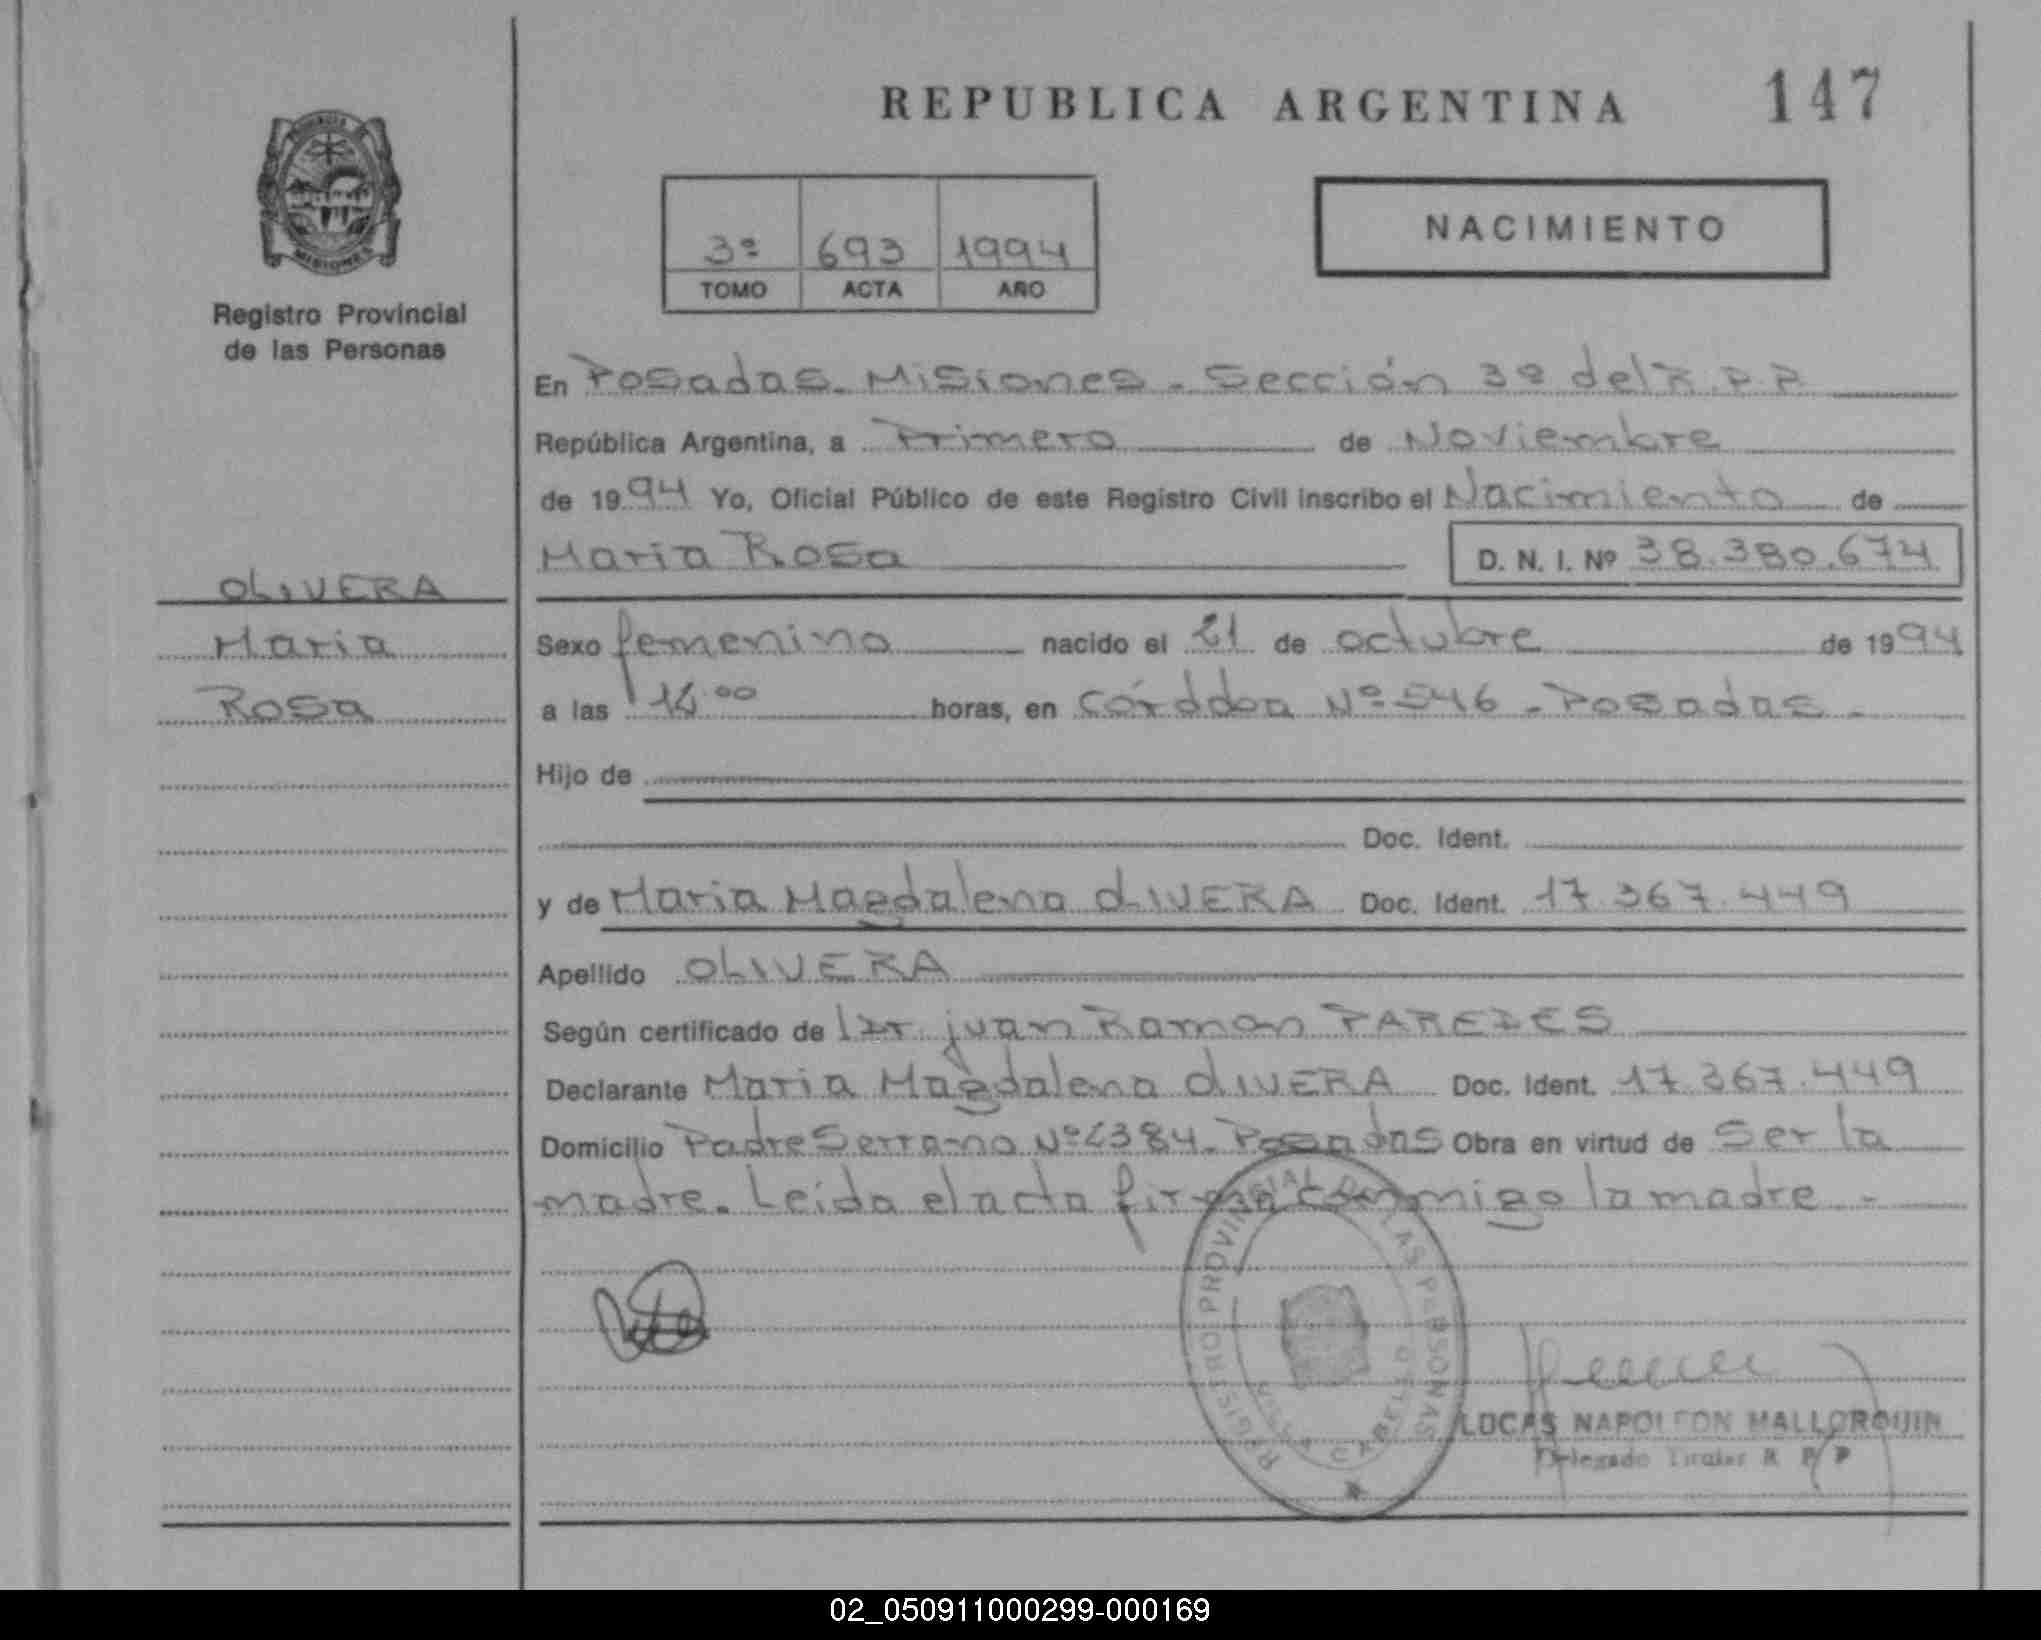 REPUBLICA ARGENTINA 147
MISIONES
Registro Provincial
de las Personas
3º 693 1994
TOMO ACTA AÑO
NACIMIENTO
OLIVERA
Maria
Rosa
En Posadas. Misiones. Sección 3º del R.P.P.
República Argentina, a Primero de Noviembre
de 1994 Yo, Oficial Público de este Registro Civil inscribo el Nacimiento de
Maria Rosa D. N. I. Nº 38.380.674
Sexo femenino nacido el 21 de octubre de 1994
a las horas, en Nº 546 - Posadas -
Hijo de
Doc. Ident.
y de Maria Magdalena OLIVERA Doc. Ident. 17.367.449
Apellido OLIVERA
Según certificado de Dr. juan Ramon PAREDES
Declarante Maria Magdalena OLIVERA Doc. Ident. 17.367.449
Domicilio Padre Serrano Nº 2384. Posadas Obra en virtud de Ser la
madre. Leida el acta firma conmigo la madre -
REGISTRO PROVINCIAL DE LAS PERSONAS
LUCAS NAPOLEON MALLORQUIN
Delegado Titular R P P
02_050911000299-000169